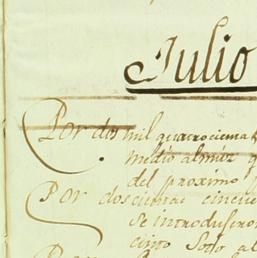 Julio
Por dos mil quatrocienta
medio almuz
del proximo
Por doscientas cincu
se introduseron
cinto Soto al
Por